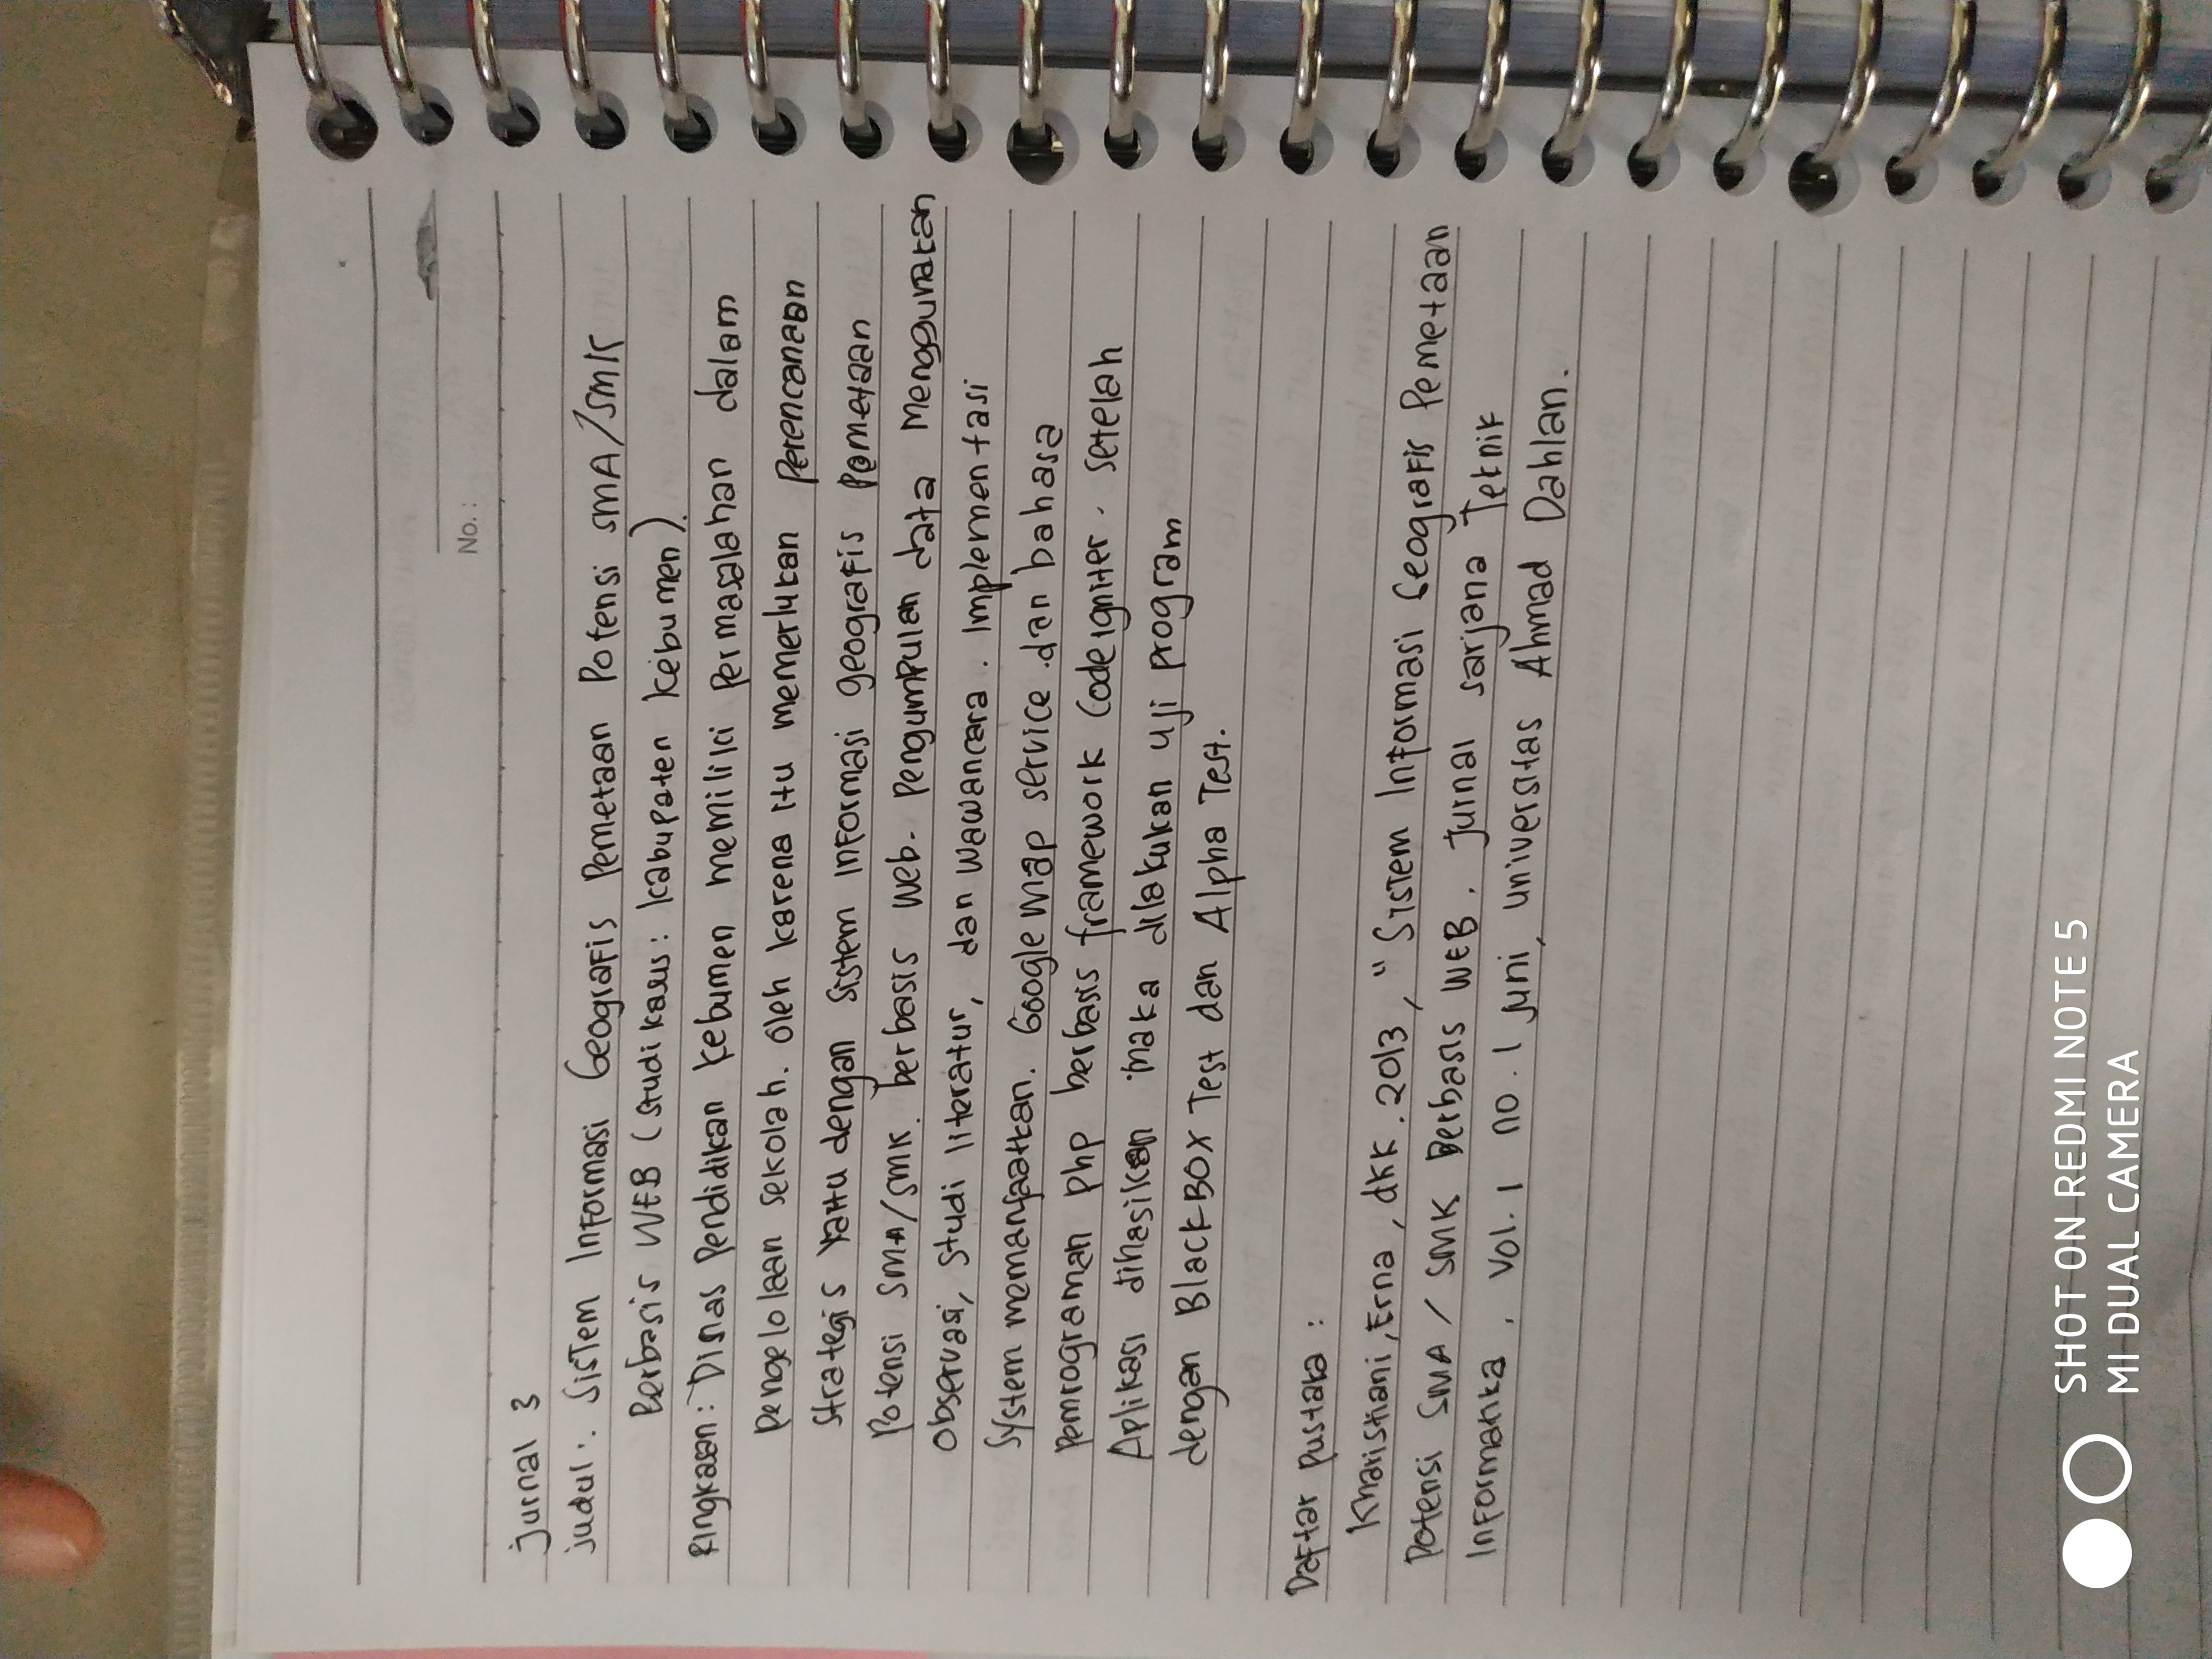 No. :
Jurnal 3
Judul : Sistem Informasi Geografis Pemetaan Potensi SMA/SMK
Berbasis WEB (Studi kasus : Kabupaten Kebumen).
Ringkasan : Dinas Pendidikan Kebumen memiliki permasalahan dalam
pengelolaan sekolah. oleh karena itu memerlukan perencanaan
strategis yaitu dengan sistem informasi geografis pemetaan
potensi SMA/SMK. berbasis web. pengumpulan data menggunakan
observasi, studi literatur, dan wawancara. Implementasi
System memanfaatkan. Google map service .dan bahasa
pemrograman php berbasis framework Codeigniter. setelah
Aplikasi dihasilkan maka dilakukan uji program
dengan BlackBOX Test dan Alpha Test.
Daftar pustaka :
Kharistiani, Erna, dkk. 2013, "Sistem Informasi Geografis Pemetaan
Potensi SMA / SMK Berbasis WEB. Jurnal sarjana Teknik
Informatika, Vol. 1 no. 1 juni, universitas Ahmad Dahlan.
SHOT ON REDMI NOTE 5
MI DUAL CAMERA